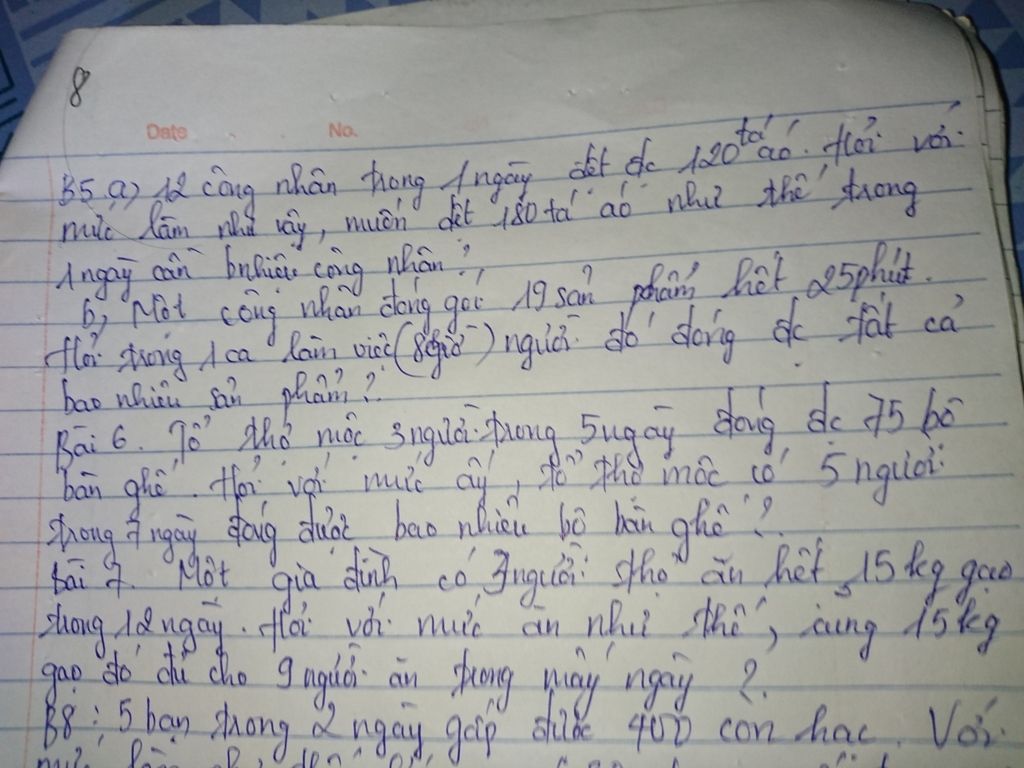 8
Date No.
B5 a, 12 công nhân trong 1 ngày dệt đc 120 tá áo. Hỏi với
mức làm như vậy, muốn dệt 180 tá áo như thế trong
1 ngày cần bnhiêu công nhân?
b, Một công nhân đóng gói 19 sản phẩm hết 25 phút.
Hỏi trong 1 ca làm việc (8 giờ) người đó đóng đc tất cả
bao nhiêu sản phẩm?
Bài 6. Tổ thợ mộc 3 người trong 5 ngày đóng đc 75 bộ
bàn ghế. Hỏi với mức ấy, tổ thợ mộc có 5 người
trong 7 ngày đóng được bao nhiêu bộ bàn ghế?
bài 7. Một gia đình có 3 người thì ăn hết 15 kg gạo
trong 12 ngày. Hỏi với mức ăn như thế, cùng 15 kg
gạo đó đủ cho 9 người ăn trong mấy ngày?
B8: 5 bạn trong 2 ngày gấp được 400 con hạc. Với